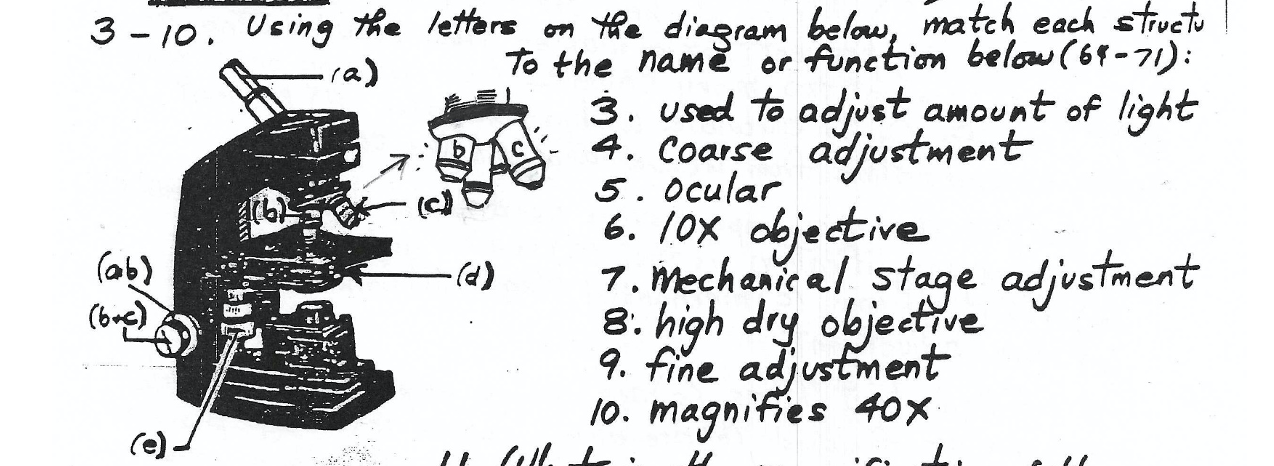 3-10. Using the letters on the diagram below, match each structu
To the name or function below (64-71):
(a)
3. used to adjust amount of light
b c
4. Coarse adjustment
5. ocular
(b) (c)
6. 10X objective
(ab) (d)
7. Mechanical stage adjustment
(b+c)
8. high dry objective
9. fine adjustment
10. magnifies 40X
(e)